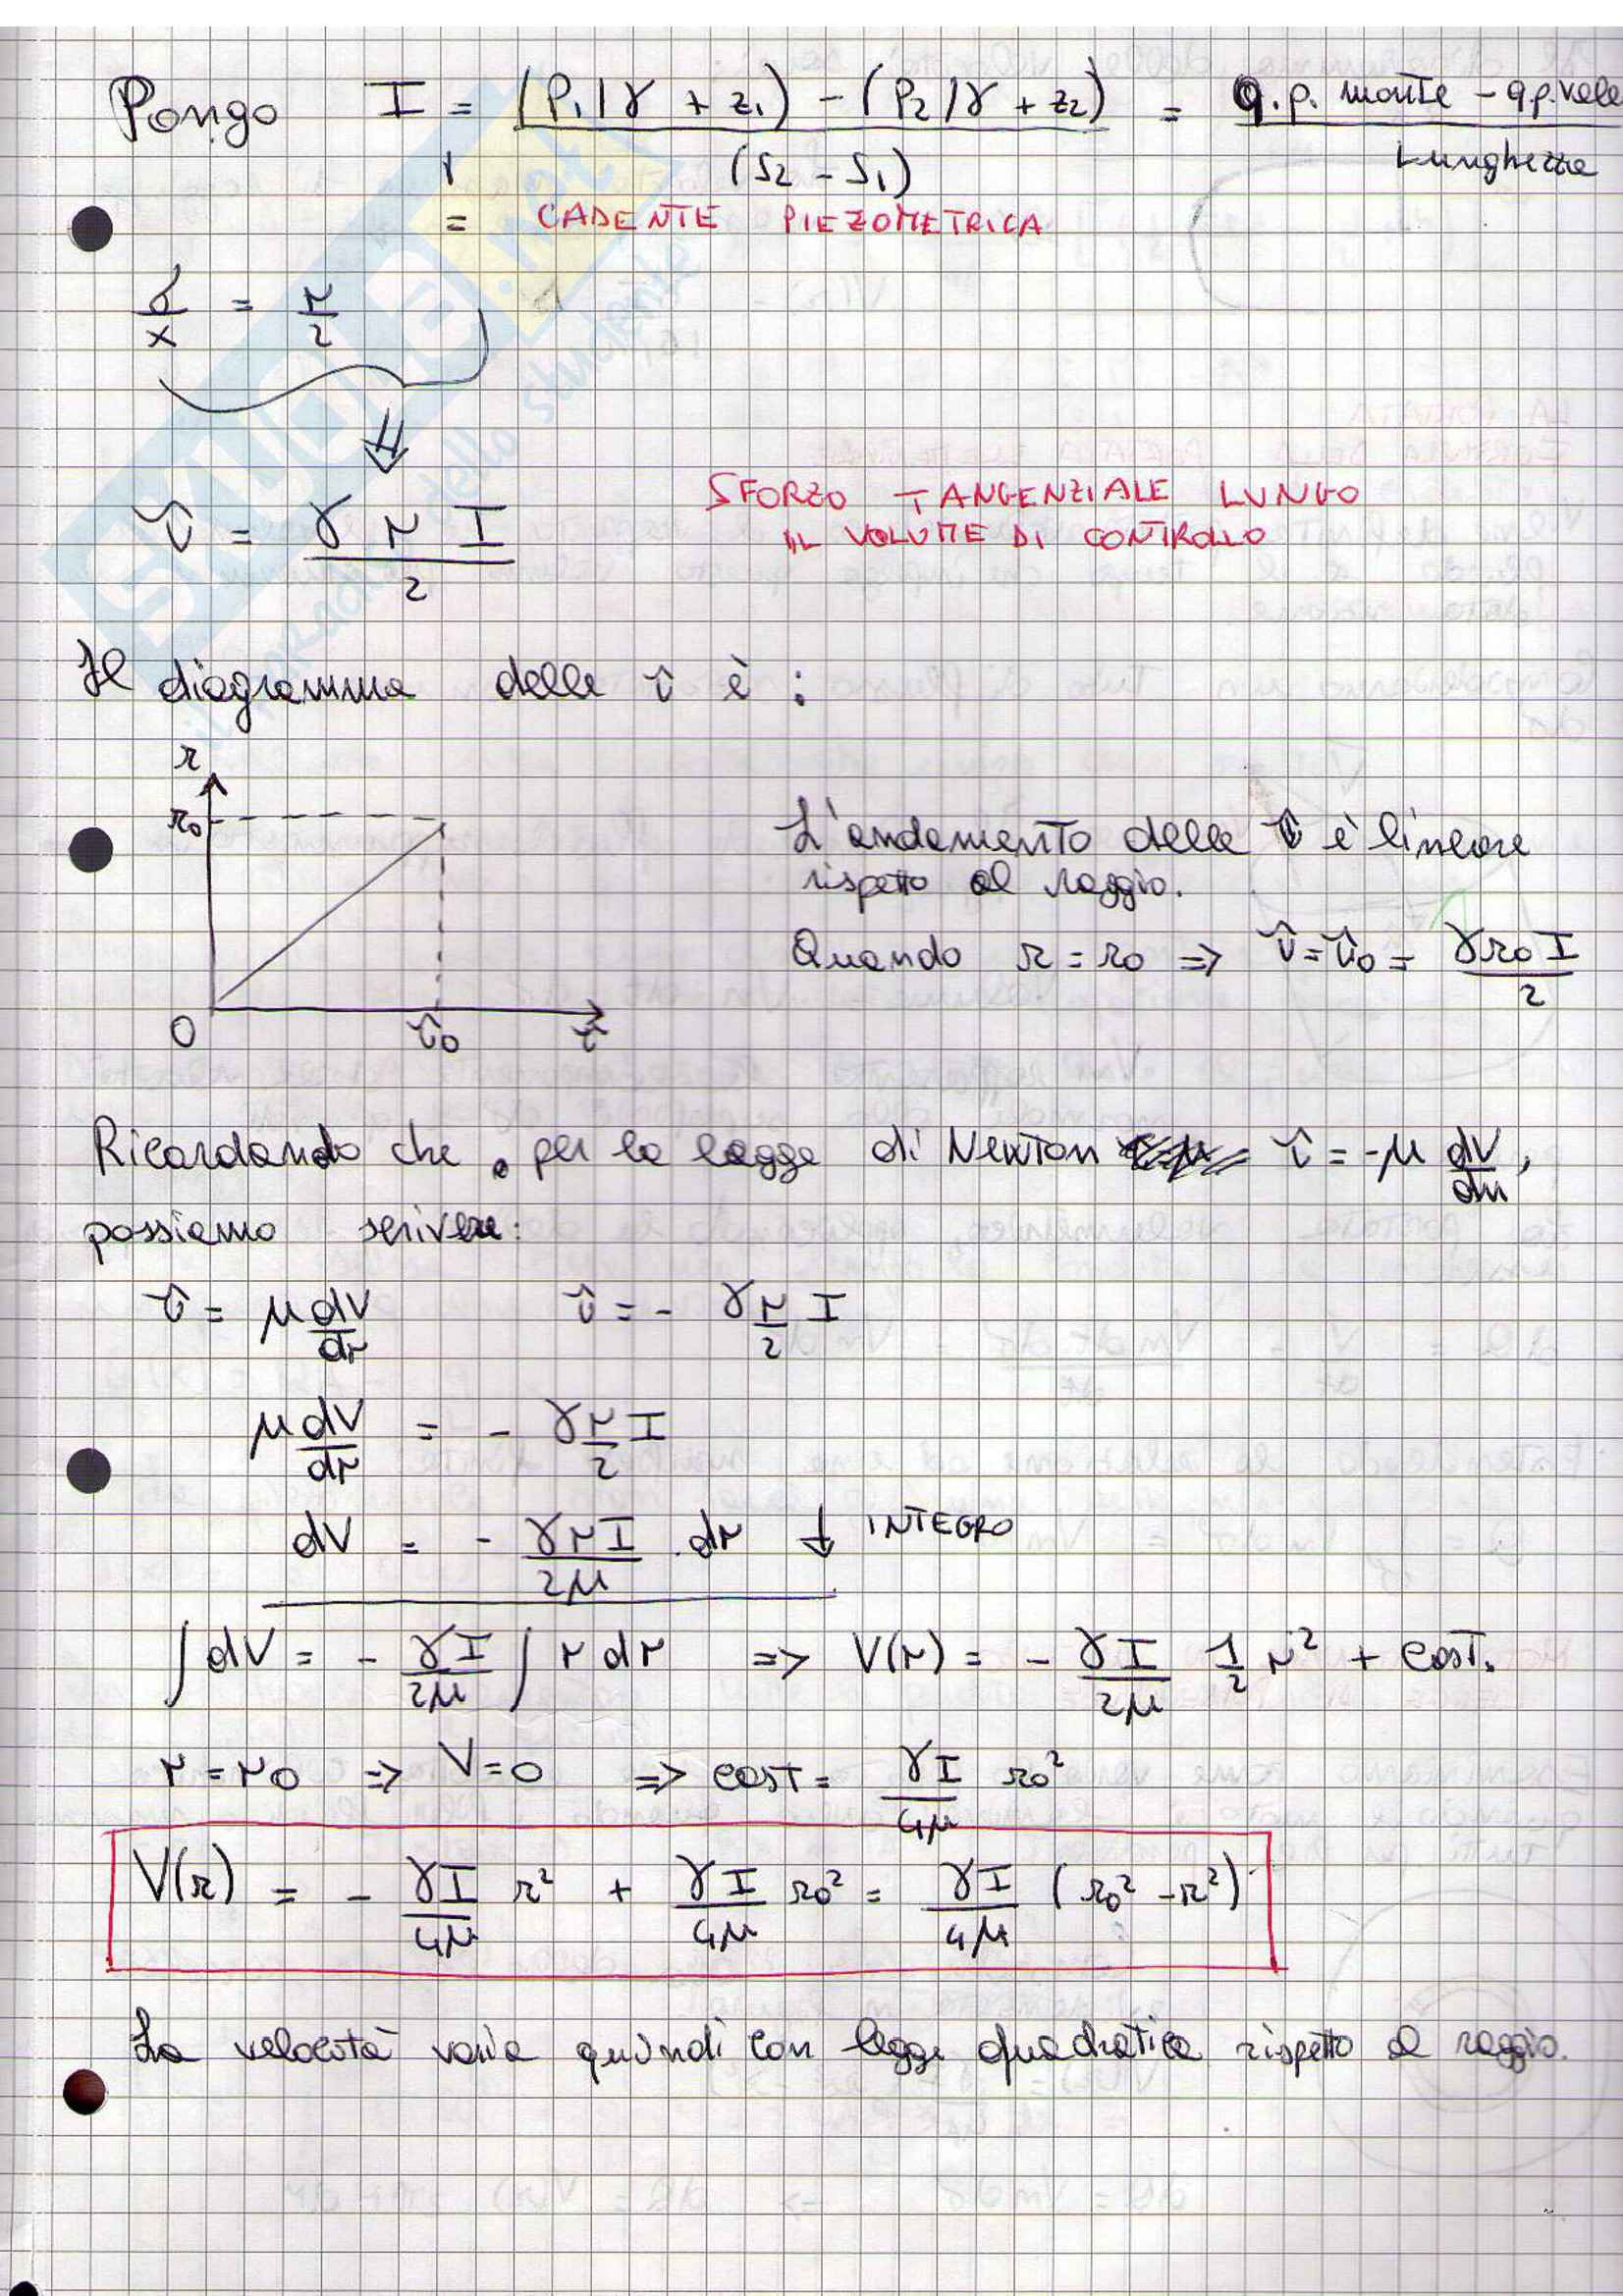 Pongo I = (P₁/γ + z₁) - (P₂/γ + z₂) / (S₂ - S₁) = q.p. monte - q.p. valle / Lunghezza
= CADENTE PIEZOMETRICA
σ/x = r/2
⇓
τ = γ r I / 2 SFORZO TANGENZIALE LUNGO
IL VOLUME DI CONTROLLO
Il diagramma delle τ è :
r
r₀
O τ₀ τ
L'andamento delle τ è lineare
rispetto al raggio.
Quando r = r₀ => τ = τ₀ = γ r₀ I / 2
Ricordando che, per la legge di Newton τ = -μ dV/dn,
possiamo scrivere:
τ = μ dV/dr τ = - γ r/2 I
μ dV/dr = - γ r/2 I
dV = - γ r I / 2μ . dr ↓ INTEGRO
∫ dV = - γ I / 2μ ∫ r dr => V(r) = - γ I / 2μ 1/2 r² + COST.
r = r₀ => V = 0 => COST = γ I / 4μ r₀²
V(r) = - γ I / 4μ r² + γ I / 4μ r₀² = γ I / 4μ (r₀² - r²)
La velocità varia quindi con legge quadratica rispetto al raggio.
SKUOLA.net
il paradiso dello studente